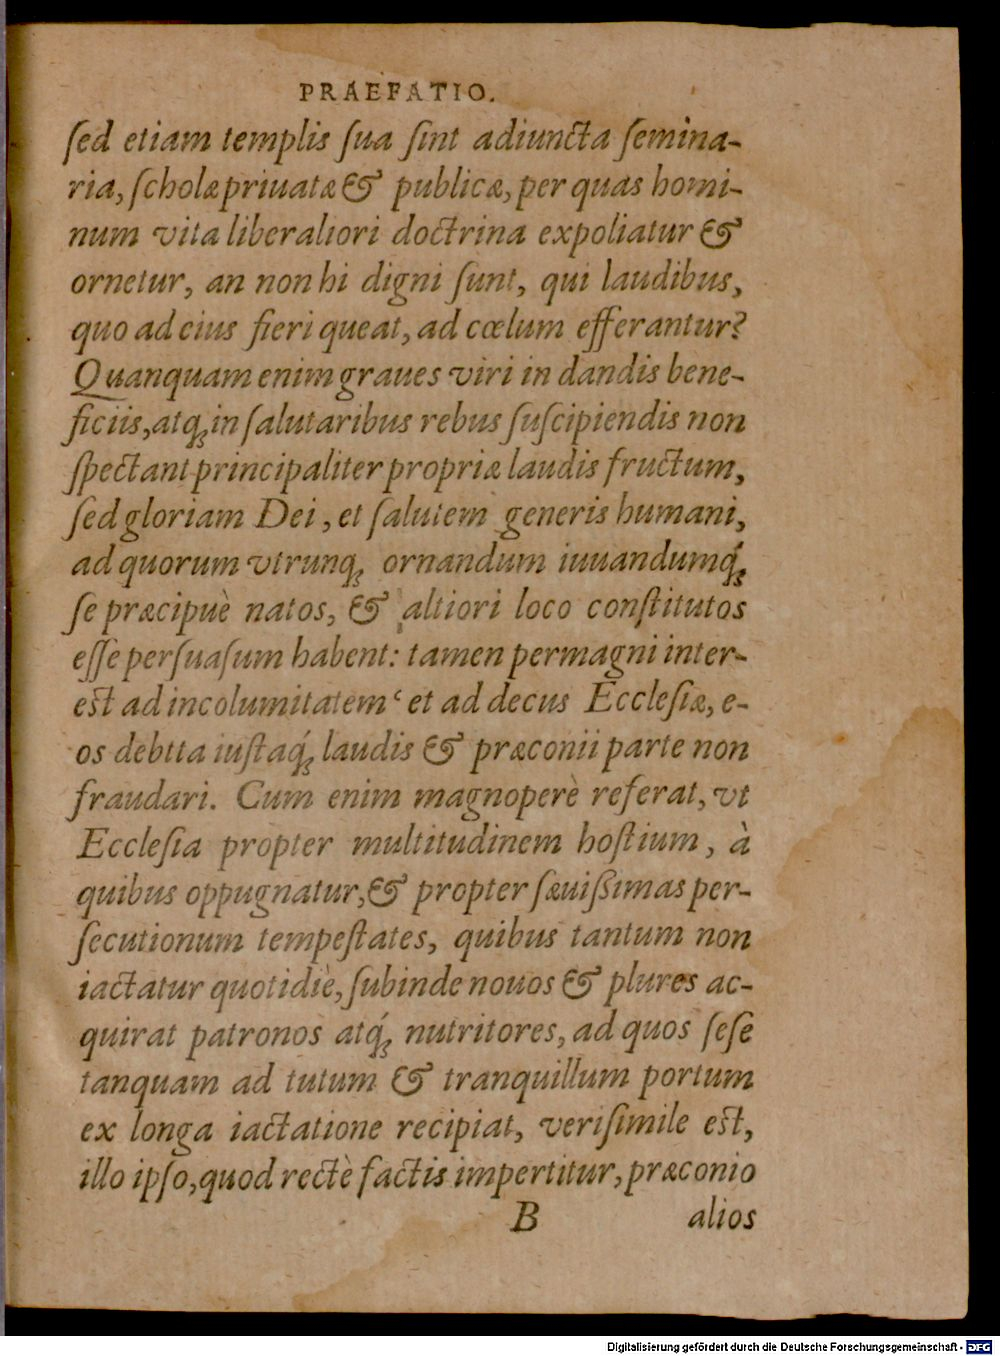 PRAEFATIO.
ſed etiam templis ſua ſint adiuncta ſemina-
ria, ſcholæ priuatæ & publicæ, per quas homi-
num vita liberaliori doctrina expoliatur &
ornetur, an non hi digni ſunt, qui laudibus,
quo ad eius fieri queat, ad cœlum efferantur?
Quanquam enim graues viri in dandis bene-
ficiis, atq; in ſalutaribus rebus ſuſcipiendis non
ſpectant principaliter propriæ laudis fructum,
ſed gloriam Dei, et ſalutem generis humani,
ad quorum vtrunq; ornandum iuuandumq́;
ſe præcipuè natos, & altiori loco conſtitutos
eſſe perſuaſum habent: tamen permagni inter-
est ad incolumitatem et ad decus Eccleſiæ, e-
os debtta iuſtaq́; laudis & præconii parte non
fraudari. Cum enim magnoperè referat, vt
Eccleſia propter multitudinem hoſtium, à
quibus oppugnatur, & propter ſæuißimas per-
ſecutionum tempeſtates, quibus tantum non
iactatur quotidiè, ſubinde nouos & plures ac-
quirat patronos atq́; nutritores, ad quos ſeſe
tanquam ad tutum & tranquillum portum
ex longa iactatione recipiat, veriſimile est,
illo ipſo, quod rectè factis impertitur, præconio
B alios
Digitalisierung gefördert durch die Deutsche Forschungsgemeinschaft - DFG